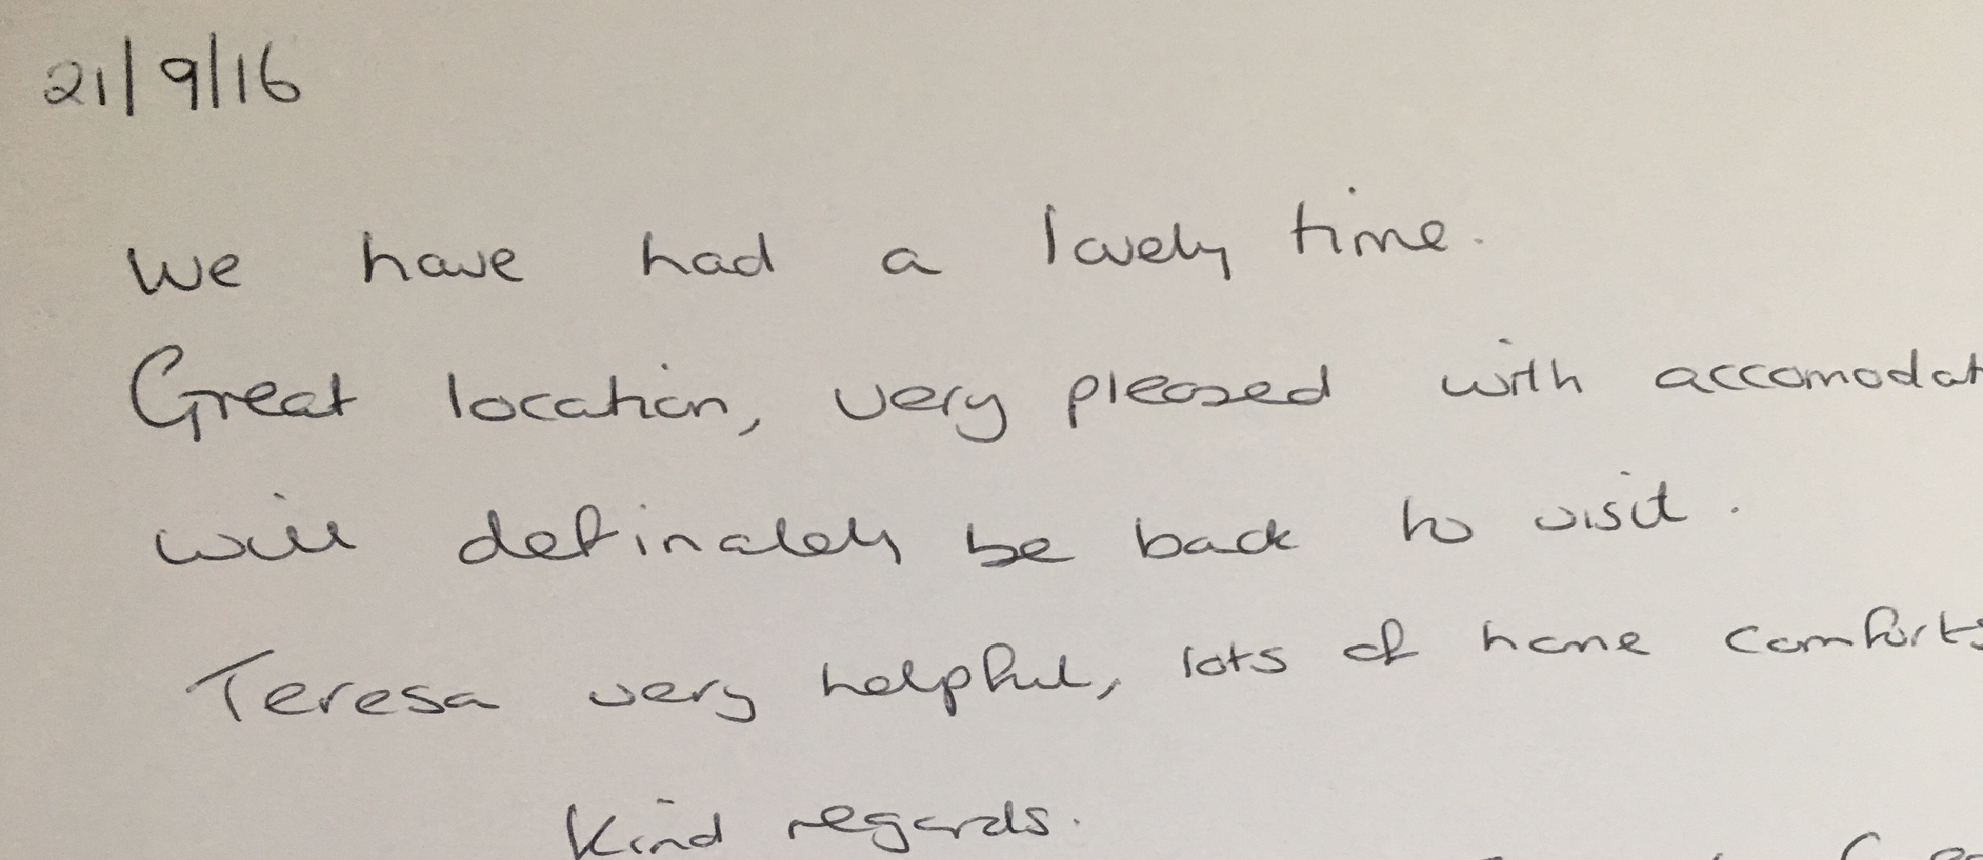 21/9/16
We have had a lovely time.
Great location, very pleased with accomodat
will definately be back to visit.
Teresa very helpful, lots of home comforts
Kind regards.